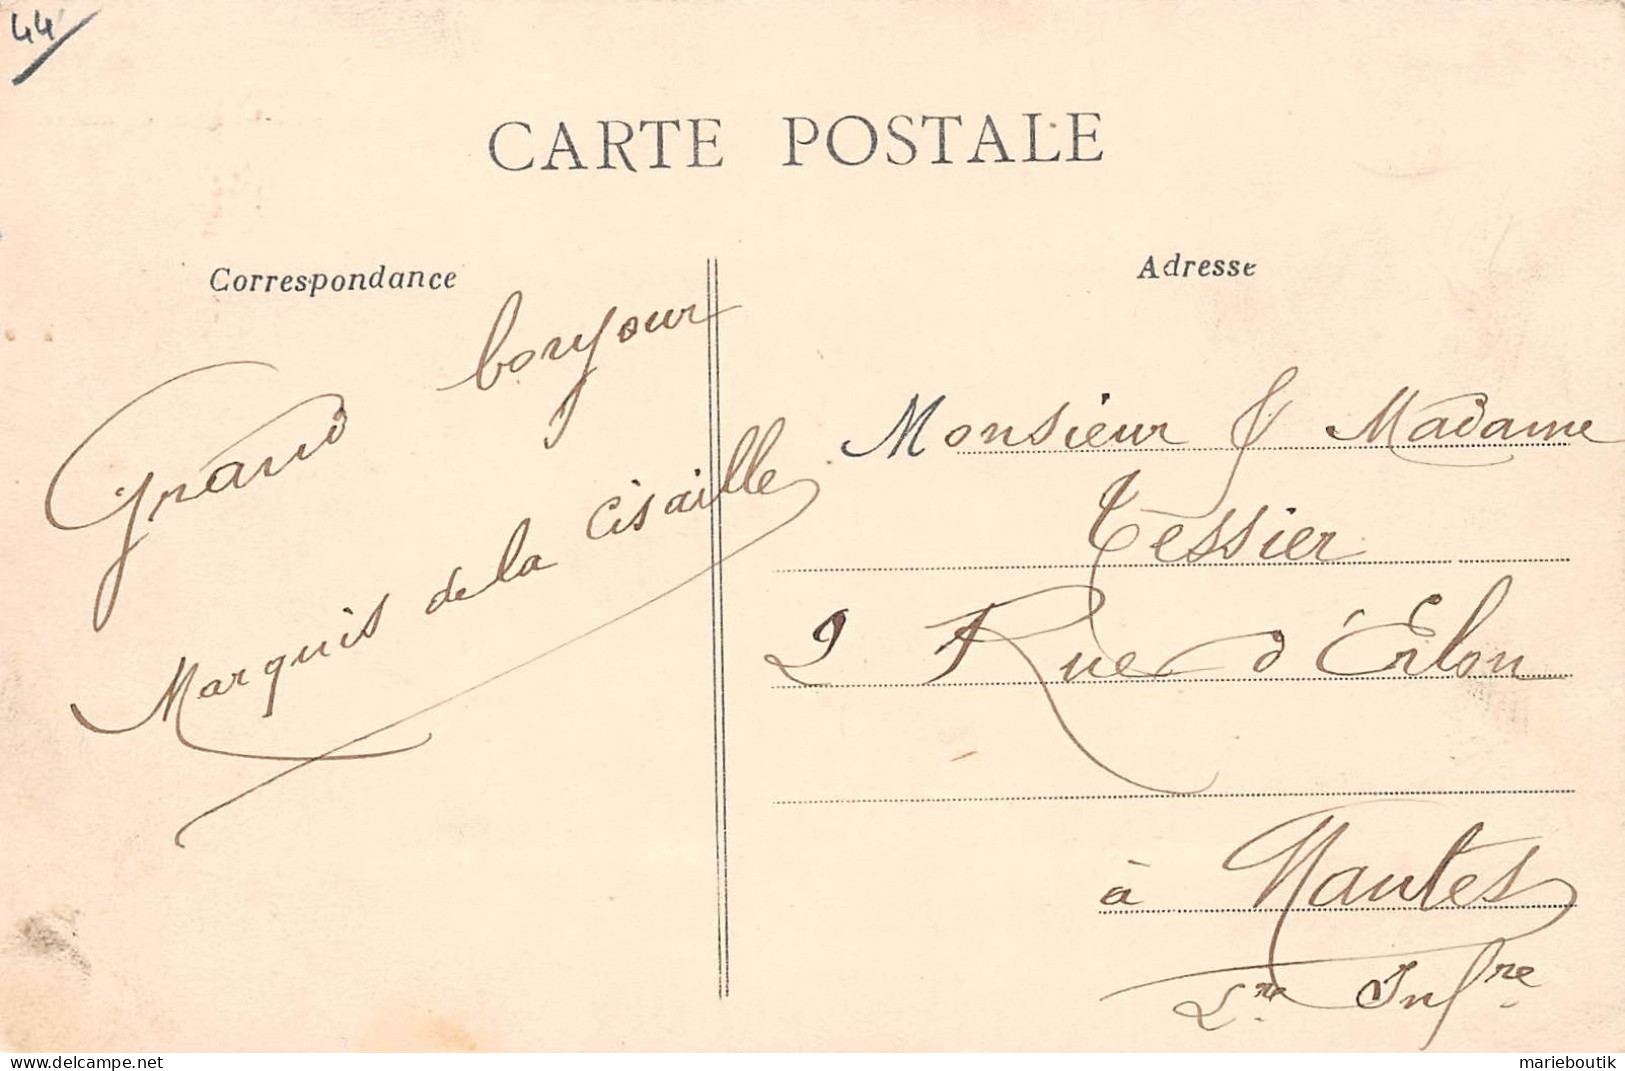 44
CARTE POSTALE
Correspondance
Grand bonjour
Marquis de la Cisaille
Adresse
Monsieur & Madame
Tessier
2 Rue d'Erlon
à Nantes
Lre Infre
delcampe.net
marieboutik